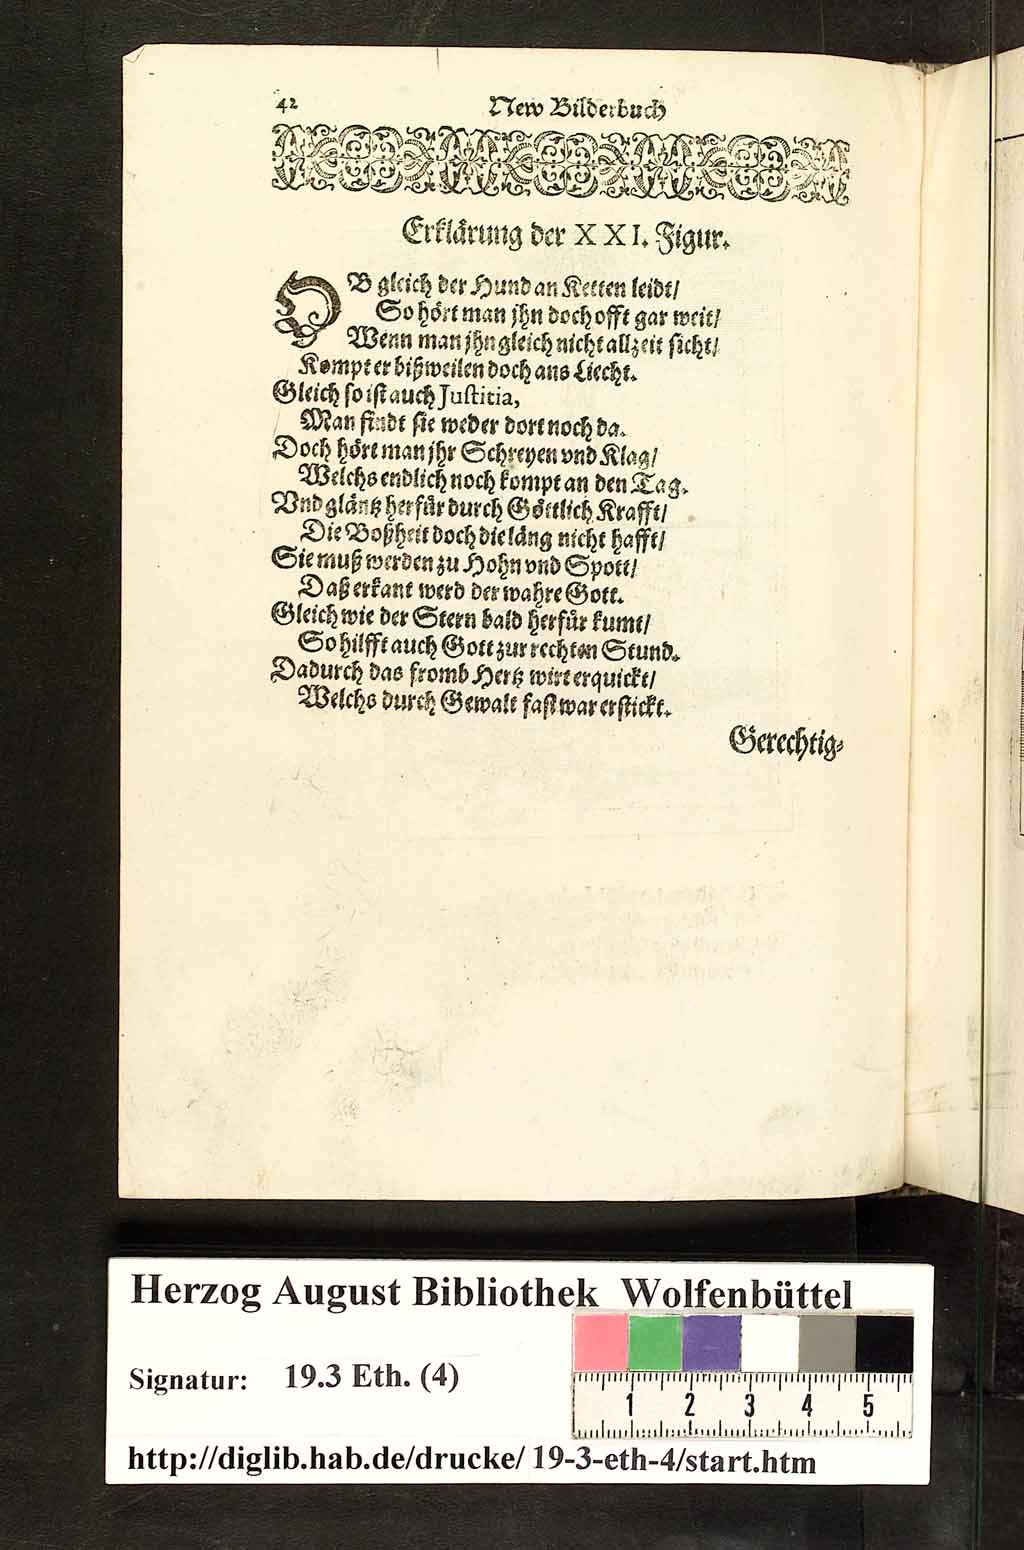 42 New Bilderbuch
Erklärung der XXI. Figur.
OB gleich der Hund an Ketten leidt/
So hört man jhn doch offt gar weit/
Wenn man jhn gleich nicht allzeit sicht/
Kompt er bißweilen doch ans Liecht.
Gleich so ist auch Justitia,
Man findt sie weder dort noch da.
Doch hört man jhr Schreyen vnd Klag/
Welchs endlich noch kompt an den Tag.
Vnd gläntz herfür durch Göttlich Krafft/
Die Boßheit doch die läng nicht hafft/
Sie muß werden zu Hohn vnd Spott/
Daß erkant werd der wahre Gott.
Gleich wie der Stern bald herfür kumt/
So hilfft auch Gott zur rechten Stund.
Dadurch das fromb Hertz wirt erquickt/
Welchs durch Gewalt fast war erstickt.
Gerechtig-
Herzog August Bibliothek Wolfenbüttel
Signatur: 19.3 Eth. (4)
1 2 3 4 5
http://diglib.hab.de/drucke/ 19-3-eth-4/start.htm